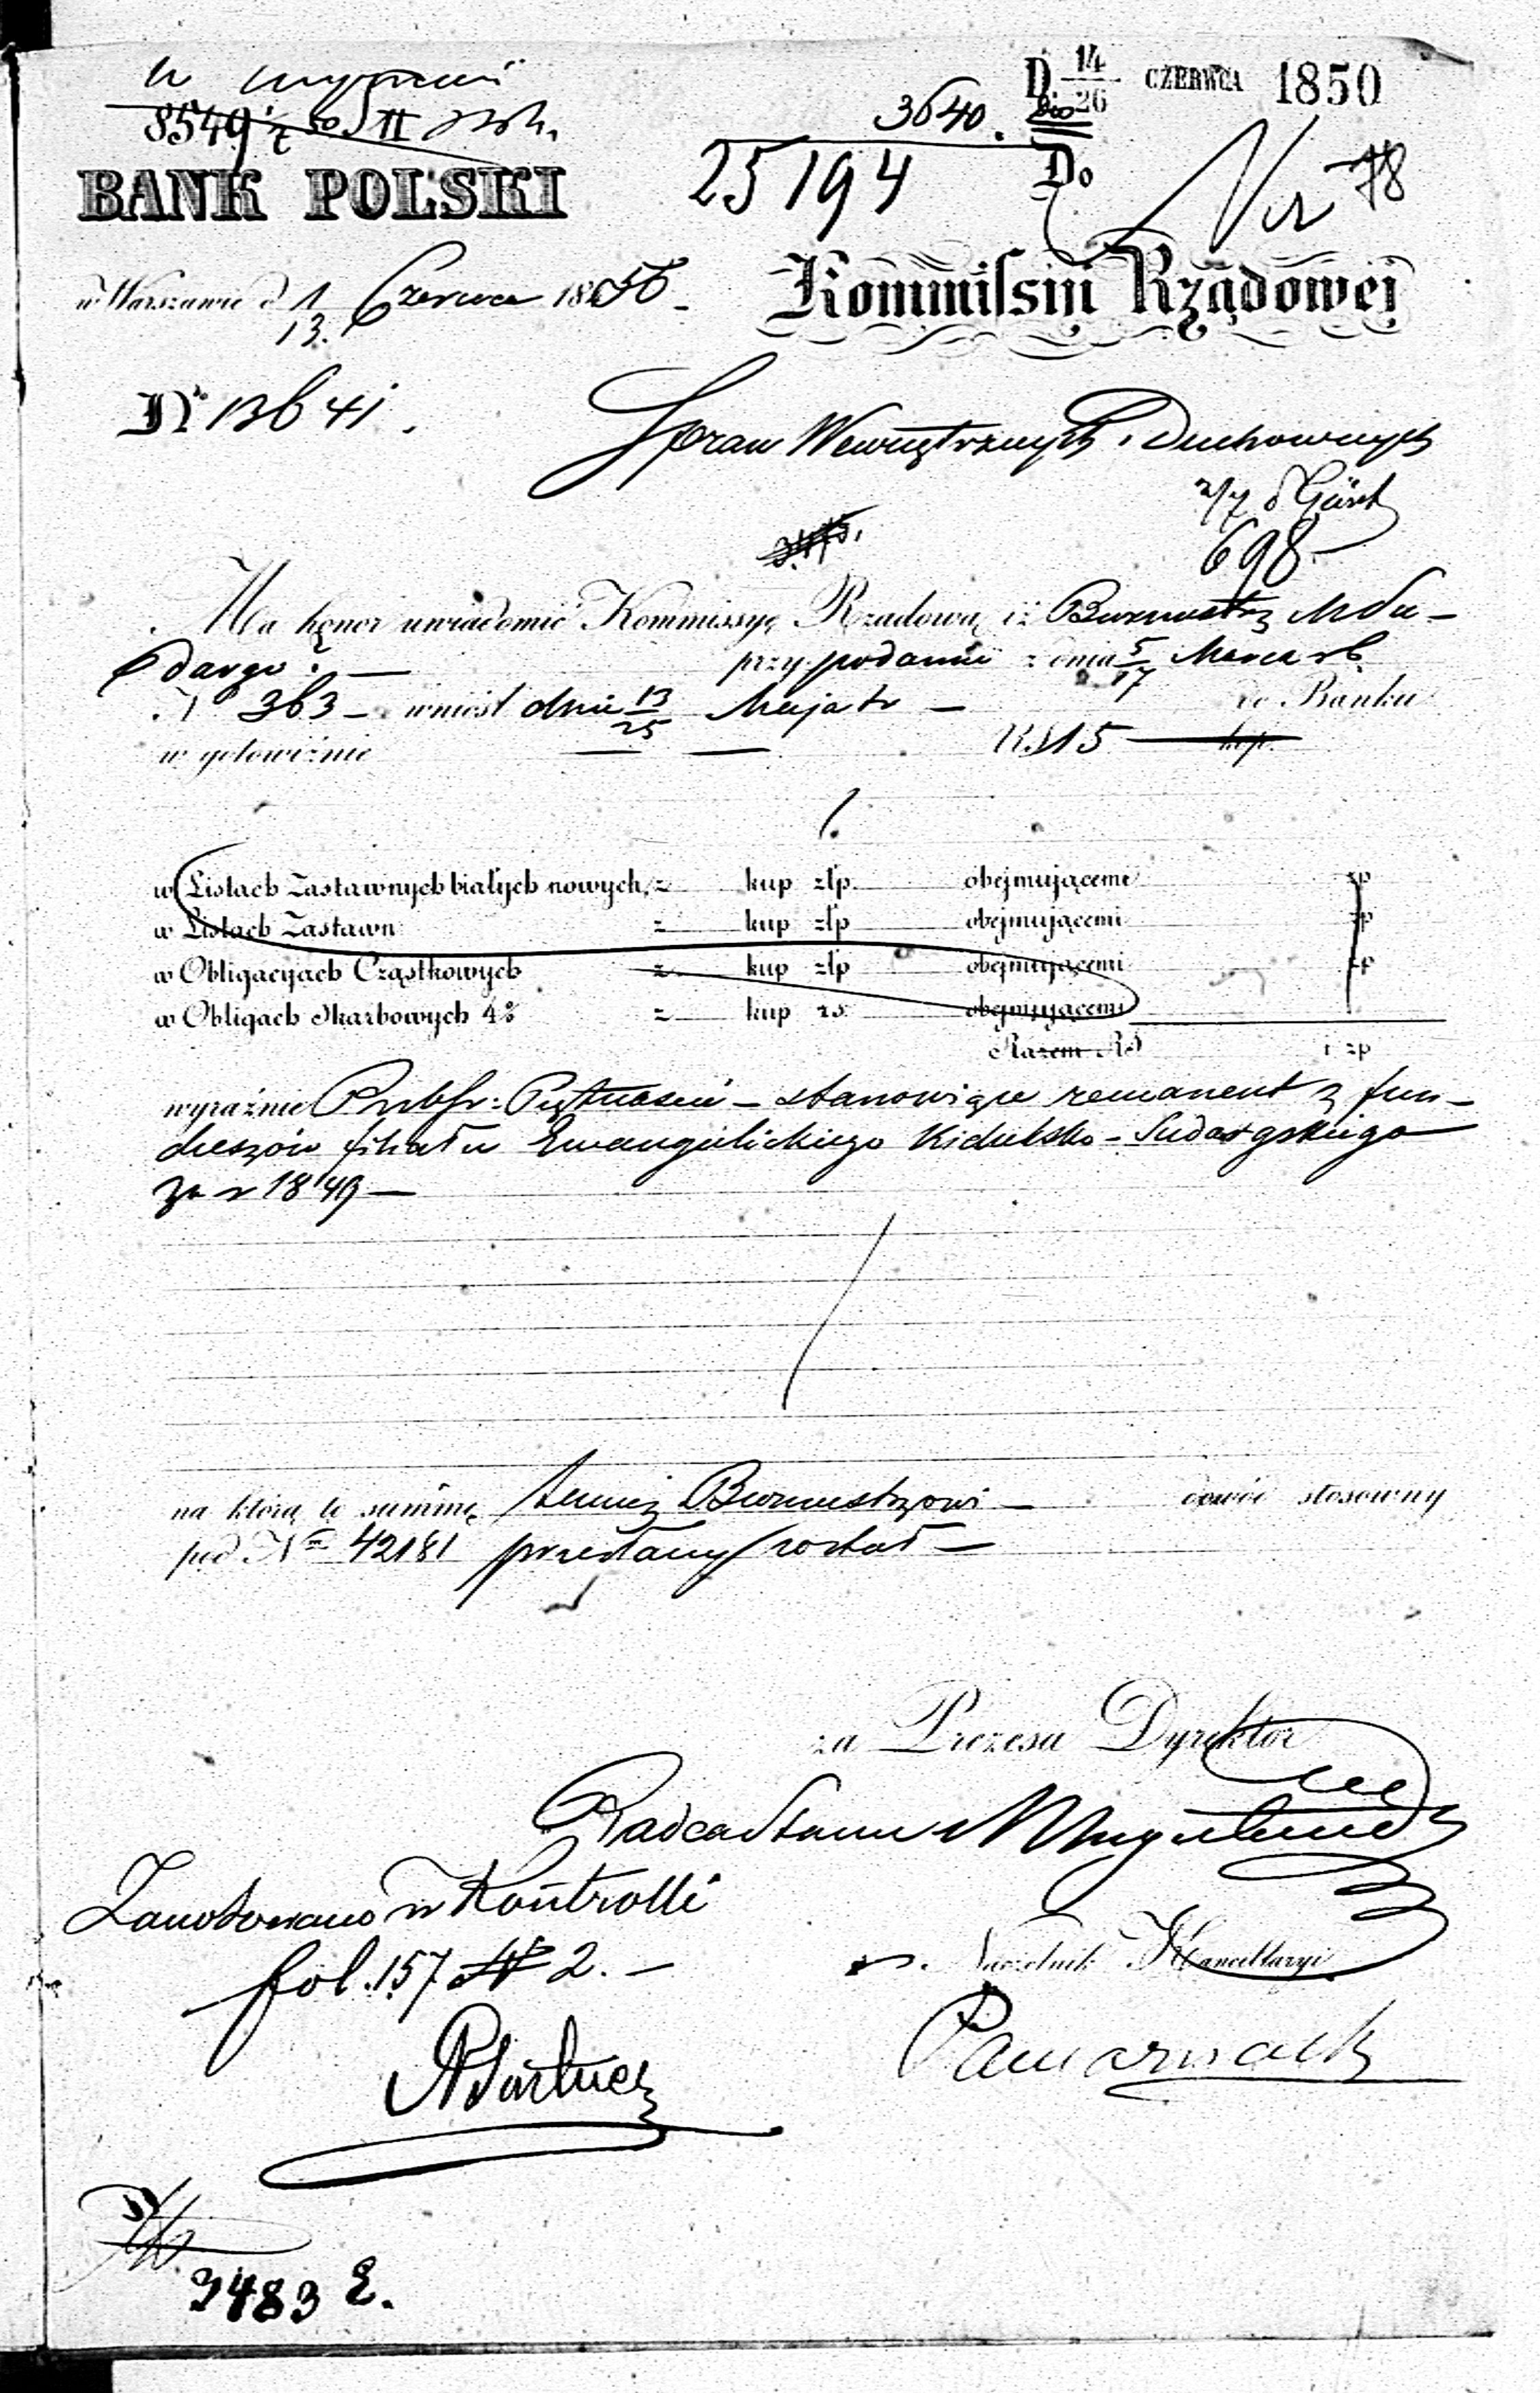 8549 z 50 II
D. 14/26 CZERWCA 1850
3640.
BANK POLSKI
25194
Do
Nr 78
w Warszawie d 1/13. Czerwca 1850
Kommissyi Rządowej
Nr 13641.
Spraw Wewnętrznych i Duchownych
698
Ma honor uwiadomić Kommissyę Rządową iż Burmistrz M. Su-
dargi. — przy podaniu z dnia 5/17 Marca rb
N 363 — wniósł dnia 13/25 Maja tr — do Banku
w gotowiźnie — — RS 15 — kop.
w Listach Zastawnych białych nowych z kup złp obejmującemi zp
w Listach Zastawn z kup złp obejmującemi zp
w Obligacyjach Cząstkowych z kup złp obejmującemi zp
w Obligach Skarbowych 4% z kup rs obejmującemi
Razem RS i zp
wyraźnie Rub sr: Piętnaście — stanowiące remanent z fun-
duszów filiału Ewangielickiego Kidulsko-Sudargskiego
za r 1849 —
na którą to summę temuż Burmistrzowi — dowód stosowny
pod Nr 42181 przesłany został —
za Prezesa Dyrektor
Radca Stanu
Zanotowano w Kontrolli
fol. 157 N 2. —
Naczelnik Kancellaryi
3483 E.